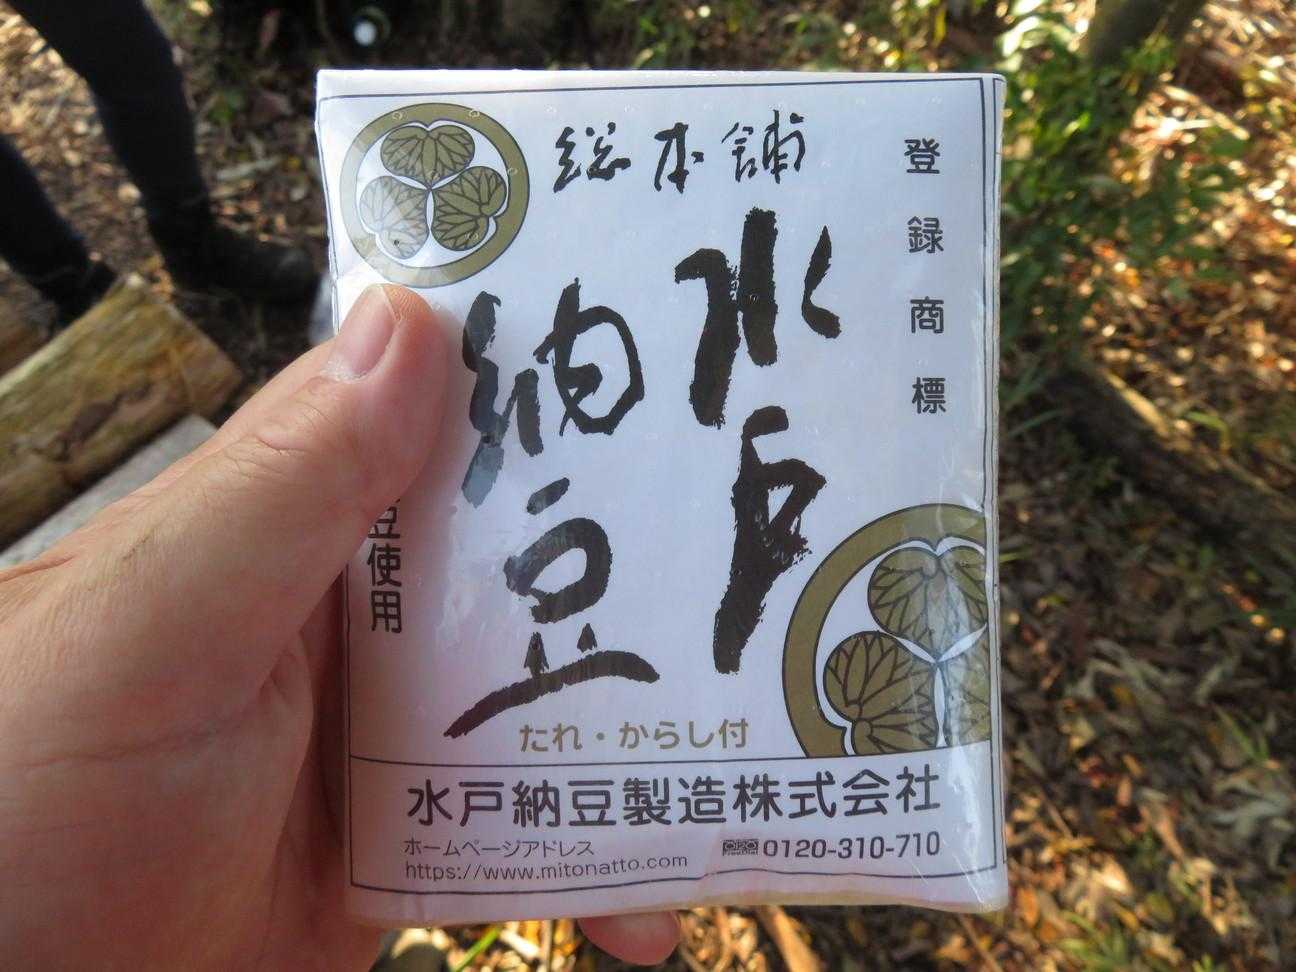 総本舗
登録商標
水戸
納豆
豆使用
たれ・からし付
水戸納豆製造株式会社
ホームページアドレス
0120-310-710
https://www.mitonatto.com